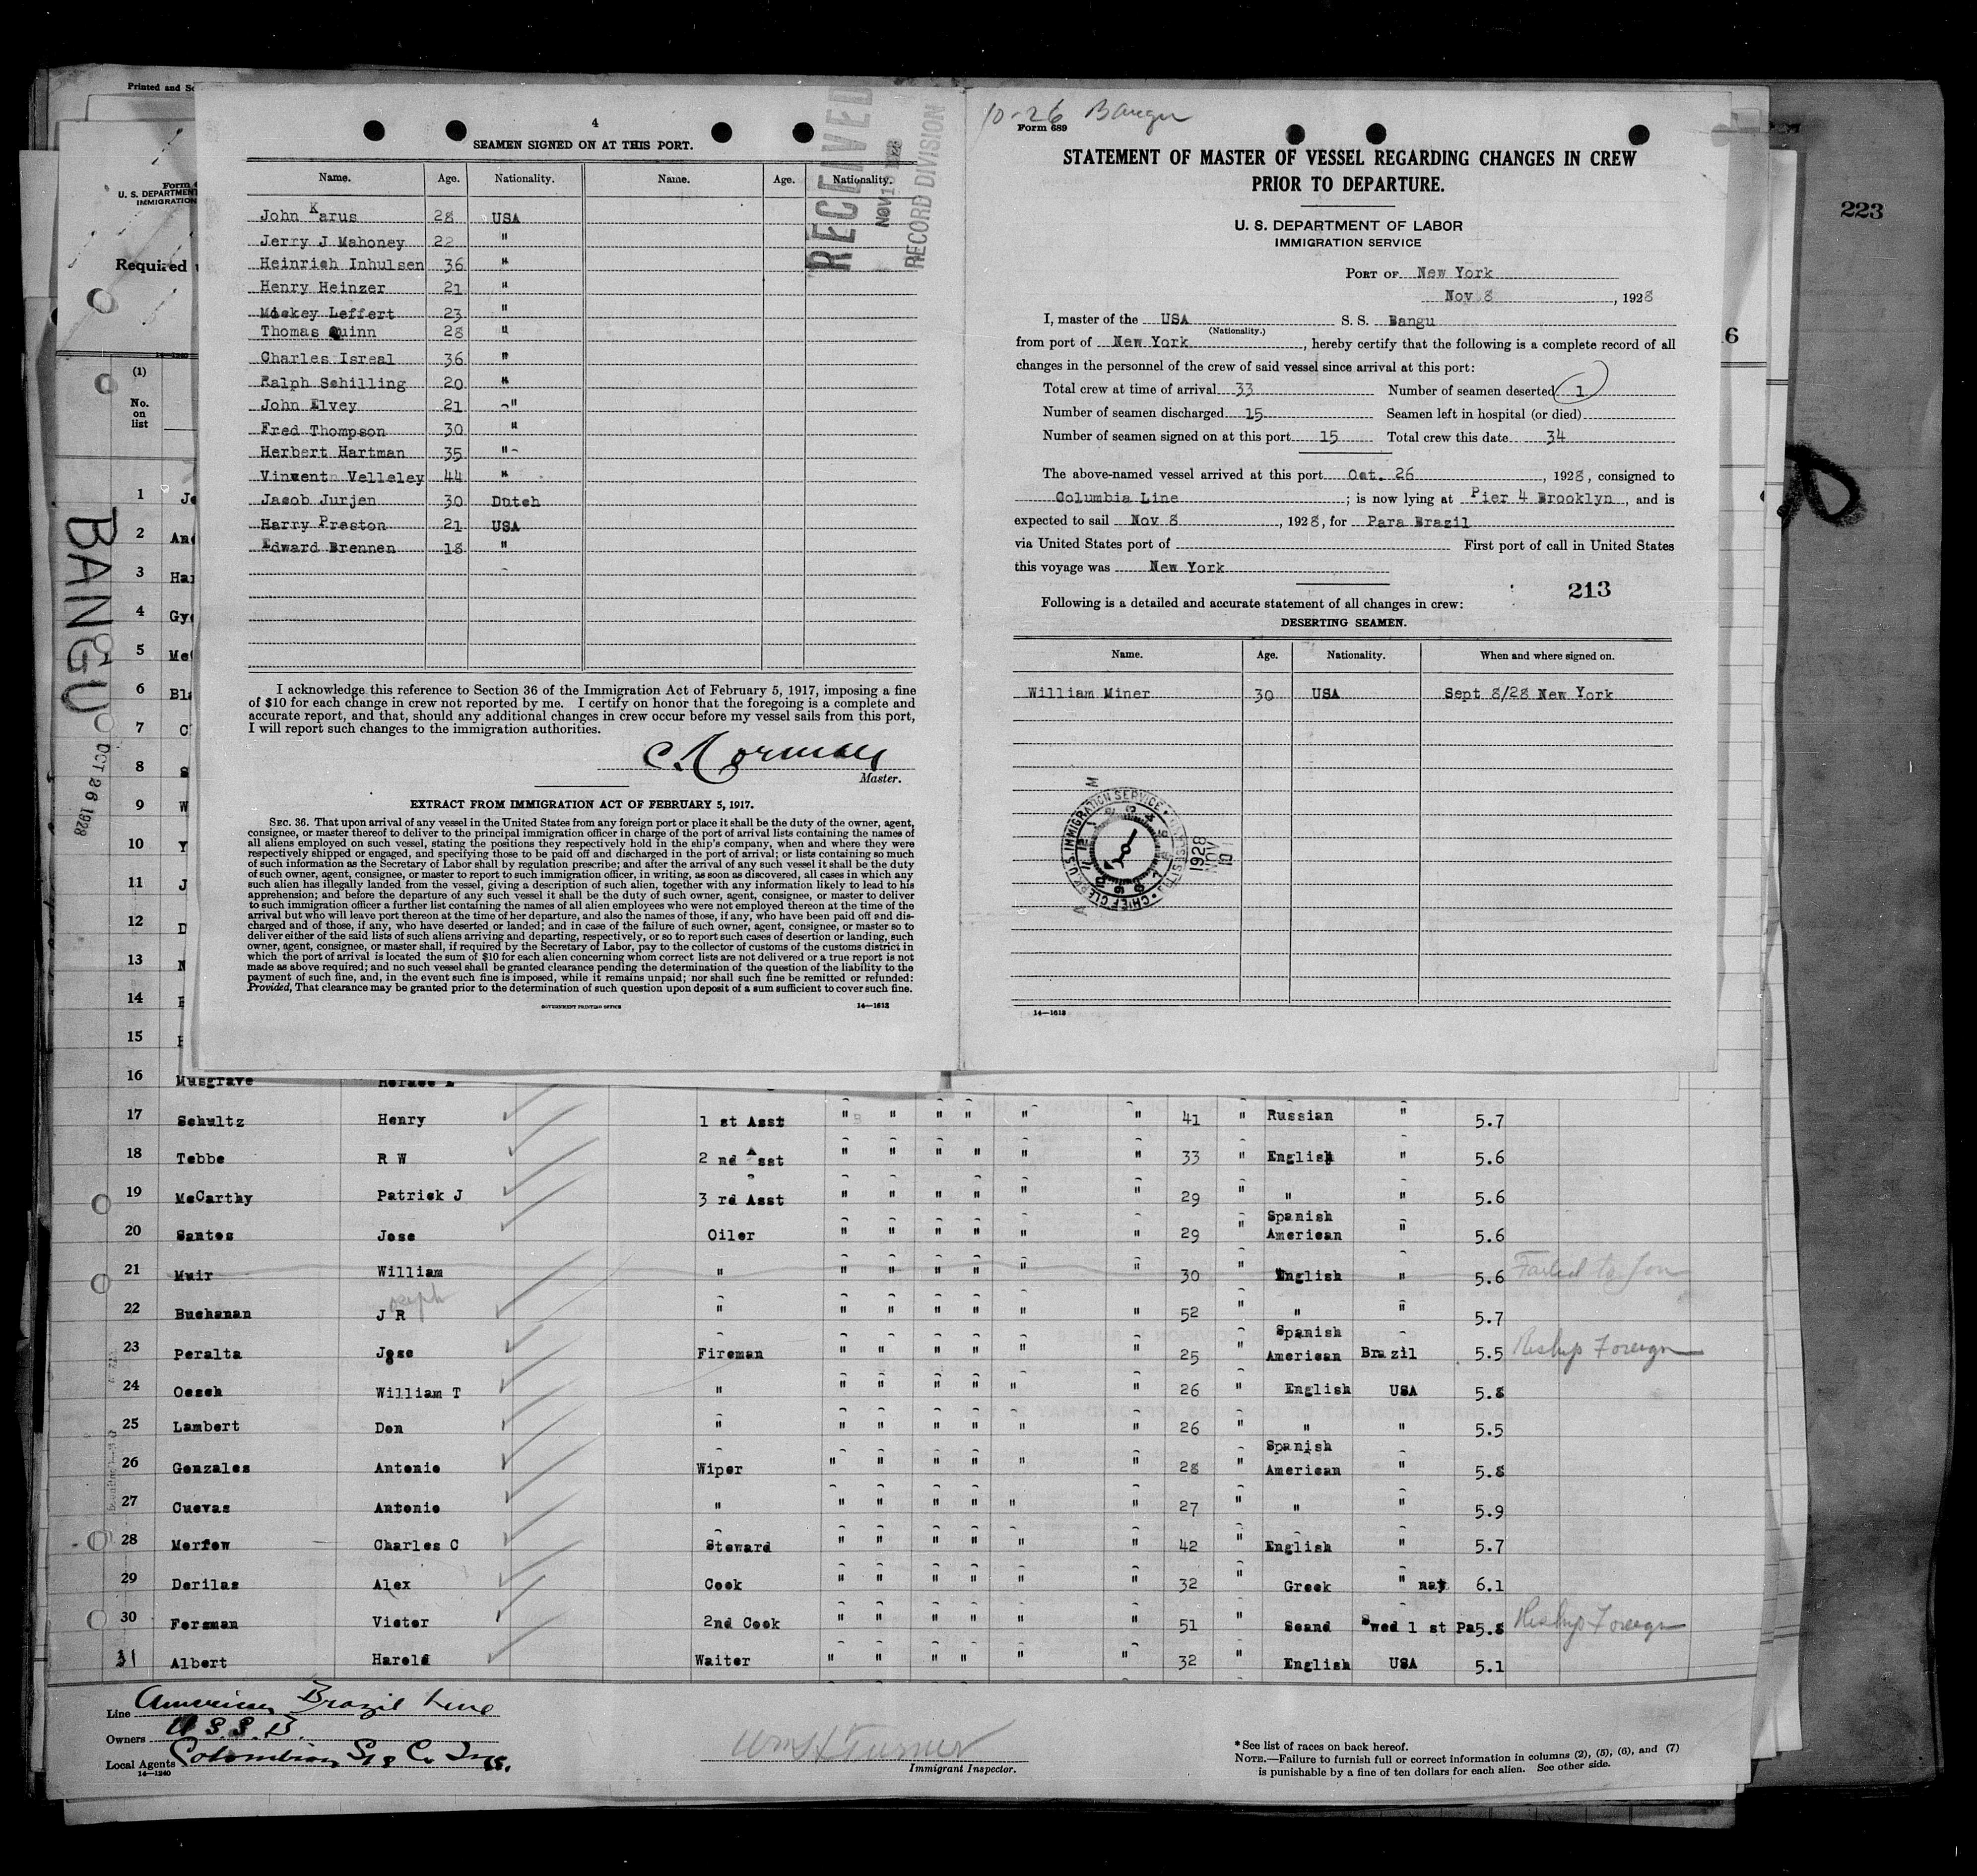 Printed and
4
SEAMEN SIGNED ON AT THIS PORT.
Name. Age. Nationality. Name. Age. Nationality.
John Karus 28 USA
Jerry J Mahoney 22 "
Heinrich Inhulsen 36 "
Henry Heinzer 21 "
Mickey Leffert 23 "
Thomas Quinn 28 "
Charles Isreal 36 "
Ralph Schilling 20 "
John Elvey 21 "
Fred Thompson 30 "
Herbert Hartman 35 "
Vinwentn Velleley 44 "
Jacob Jurjen 30 Dutch
Harry Preston 21 USA
Edward Brennen 18 "
RECEIVED
NOV
RECORD DIVISION
I acknowledge this reference to Section 36 of the Immigration Act of February 5, 1917, imposing a fine
of $10 for each change in crew not reported by me. I certify on honor that the foregoing is a complete and
accurate report, and that, should any additional changes in crew occur before my vessel sails from this port,
I will report such changes to the immigration authorities.
Master.
EXTRACT FROM IMMIGRATION ACT OF FEBRUARY 5, 1917.
SEC. 36. That upon arrival of any vessel in the United States from any foreign port or place it shall be the duty of the owner, agent,
consignee, or master thereof to deliver to the principal immigration officer in charge of the port of arrival lists containing the names of
all aliens employed on such vessel, stating the positions they respectively hold in the ship's company, when and where they were
respectively shipped or engaged, and specifying those to be paid off and discharged in the port of arrival; or lists containing so much
of such information as the Secretary of Labor shall by regulation prescribe; and after the arrival of any such vessel it shall be the duty
of such owner, agent, consignee, or master to report to such immigration officer, in writing, as soon as discovered, all cases in which any
such alien has illegally landed from the vessel, giving a description of such alien, together with any information likely to lead to his
apprehension; and before the departure of any such vessel it shall be the duty of such owner, agent, consignee, or master to deliver
to such immigration officer a further list containing the names of all alien employees who were not employed thereon at the time of the
arrival but who will leave port thereon at the time of her departure, and also the names of those, if any, who have been paid off and dis-
charged and of those, if any, who have deserted or landed; and in case of the failure of such owner, agent, consignee, or master so to
deliver either of the said lists of such aliens arriving and departing, respectively, or so to report such cases of desertion or landing, such
owner, agent, consignee, or master shall, if required by the Secretary of Labor, pay to the collector of customs of the customs district in
which the port of arrival is located the sum of $10 for each alien concerning whom correct lists are not delivered or a true report is not
made as above required; and no such vessel shall be granted clearance pending the determination of the question of the liability to the
payment of such fine, and, in the event such fine is imposed, while it remains unpaid; nor shall such fine be remitted or refunded:
Provided, That clearance may be granted prior to the determination of such question upon deposit of a sum sufficient to cover such fine.
GOVERNMENT PRINTING OFFICE 14—1613
10-26 Bangu
Form 689
STATEMENT OF MASTER OF VESSEL REGARDING CHANGES IN CREW
PRIOR TO DEPARTURE.
U. S. DEPARTMENT OF LABOR
IMMIGRATION SERVICE
PORT OF New York
Nov 8, 1928
I, master of the USA S. S. Bangu
(Nationality.)
from port of New York, hereby certify that the following is a complete record of all
changes in the personnel of the crew of said vessel since arrival at this port:
Total crew at time of arrival 33 Number of seamen deserted 1
Number of seamen discharged 15 Seamen left in hospital (or died)
Number of seamen signed on at this port 15 Total crew this date 34
The above-named vessel arrived at this port Oct. 26, 1928, consigned to
Columbia Line; is now lying at Pier 4 Brooklyn, and is
expected to sail Nov 8, 1928, for Para Brazil
via United States port of First port of call in United States
this voyage was New York
213
Following is a detailed and accurate statement of all changes in crew:
DESERTING SEAMEN.
Name. Age. Nationality. When and where signed on.
William Miner 30 USA Sept 8/28 New York
CHIEF CLERK U.S. IMMIGRATION SERVICE
1928
NOV
10
14—1613
223
6
U. S. DEPARTMENT
IMMIGRATION
Required
14—1240
(1)
No.
on
list
BANGU
OCT 26 1928
1
2
3
4
5
6
7
8
9
10
11
12
13
14
15
16 Musgrave Horace
17 Schultz Henry 1 st Asst " " " " " " 41 " Russian " 5.7
18 Tebbe R W 2 nd Asst " " " " " " 33 " English " 5.6
19 McCarthy Patrick J 3 rd Asst " " " " " " 29 " " " 5.6
20 Santos Jose Oiler " " " " " " 29 " Spanish American " 5.6
21 Muir William " " " " " " " 30 " English " 5.6 Failed to Join
22 Buchanan J R oseph " " " " " " " 52 " " " 5.7
23 Peralta Jose Fireman " " " " " " 25 " Spanish American Brazil 5.5 Reship Foreign
24 Oesch William T " " " " " " " 26 " English USA 5.8
25 Lambert Don " " " " " " " 26 " " " 5.5
26 Gonzales Antonio Wiper " " " " " " 28 " Spanish American " 5.8
27 Cuevas Antonio " " " " " " " 27 " " " 5.9
28 Morfew Charles C Steward " " " " " " 42 " English " 5.7
29 Derilas Alex Cook " " " " " " 32 " Greek " nat 6.1
30 Forsman Victor 2nd Cook " " " " " " 51 " Scand Swed 1 st Pa 5.8 Reship Foreign
31 Albert Harold Waiter " " " " " " 32 " English USA 5.1
Line American Brazil Line
Owners U.S.S.B.
Local Agents Colombian SS Co Inc.
14—1240
Wm H Turner
Immigrant Inspector.
*See list of races on back hereof.
NOTE.—Failure to furnish full or correct information in columns (2), (5), (6), and (7)
is punishable by a fine of ten dollars for each alien. See other side.